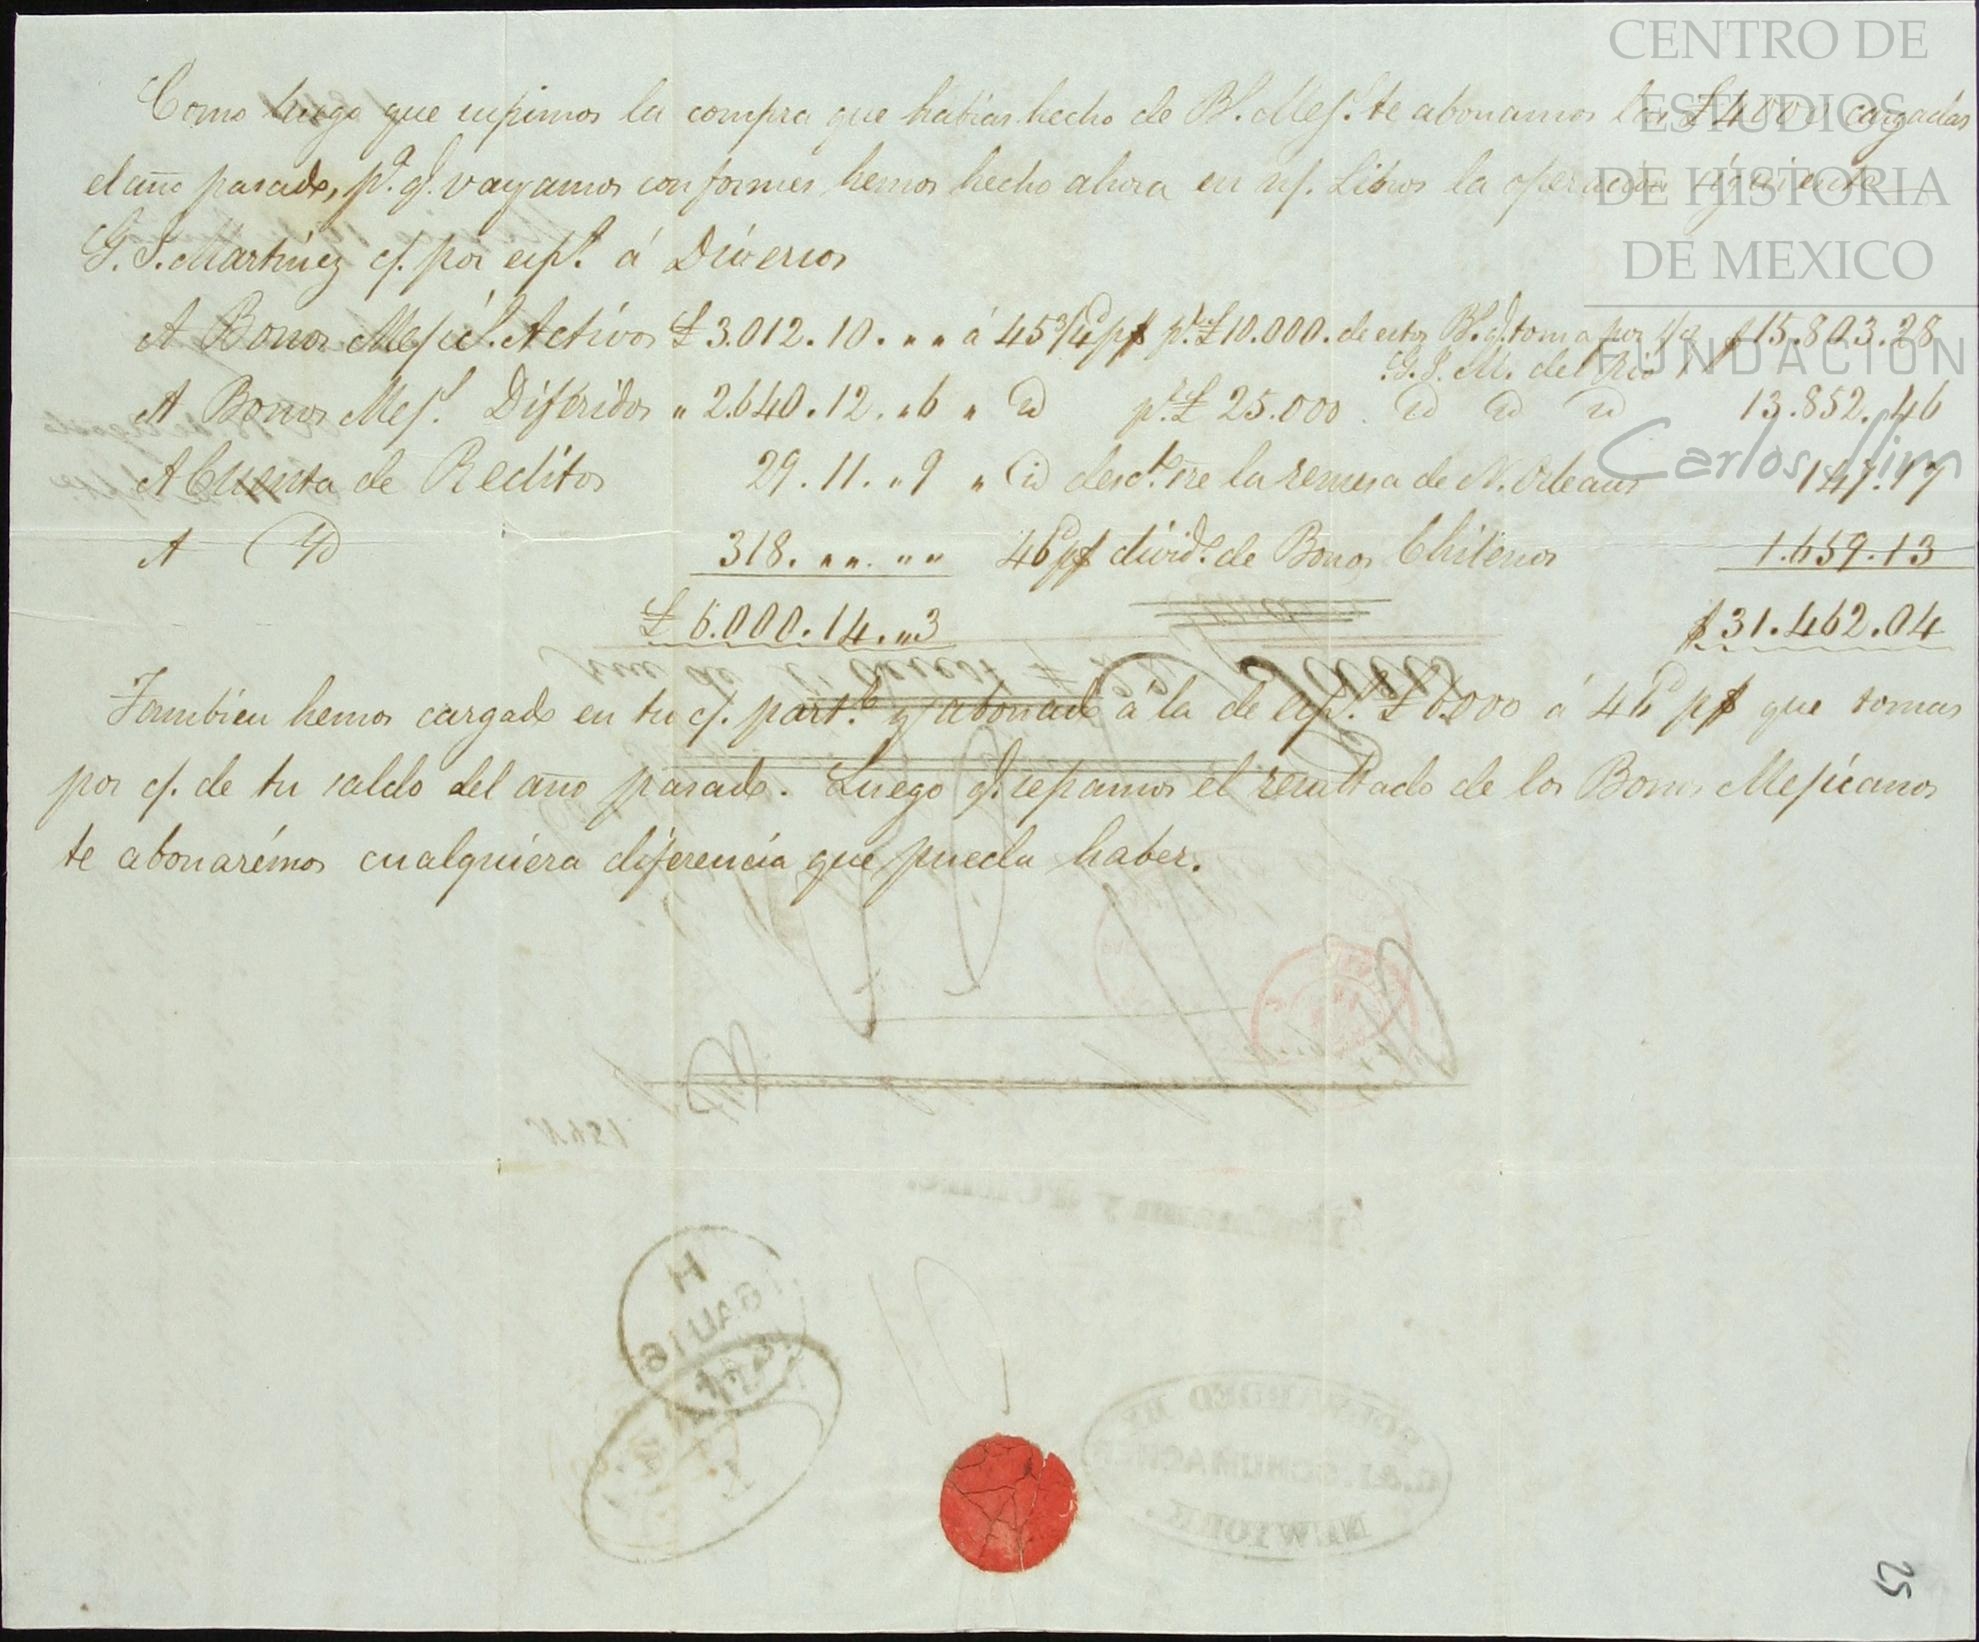 Como luego que supimos la compra que habias hecho de Bs. Mejs. te abonamos las £4000 cargadas
el año pasado, pa. q. vayamos conformes hemos hecho ahora en n/. Libros la operacion siguiente
G. J. Martínez c/. por esp.l á Diversos
A Bonos Mejic.s Activos £3.012.10.„„ á 45 3/4 d p$ pr. £10.000. de estos Bs. q. toma por s/c $15.803.28
G. J. M. del Rio
A Bonos Mejs. Diferidos „ 2.640.12.„6 „ id pr. £ 25.000. id id id 13.852.46
A Cuenta de Reditos 29.11.„9 „ id desc.to sre la remesa de N. Orleans 147.17
A id 318.„„.„„ 46d p$ divid.o de Bonos Chilenos 1.659.13
£ 6.000.14.„3 $31.462.04
Tambien hemos cargado en tu c/. part.r y abonado á la de esp.l £6.000 á 46d p$ que tomas
por c/. de tu saldo del año pasado. Luego q. sepamos el resultado de los Bonos Mejicanos
te abonarémos cualquiera diferencia que pueda haber.
H
6 AU 6
FORWARDED BY
SCHUMACHER
NEW YORK.
25
CENTRO DE
ESTUDIOS
DE HISTORIA
DE MEXICO
FUNDACION
Carlos Slim